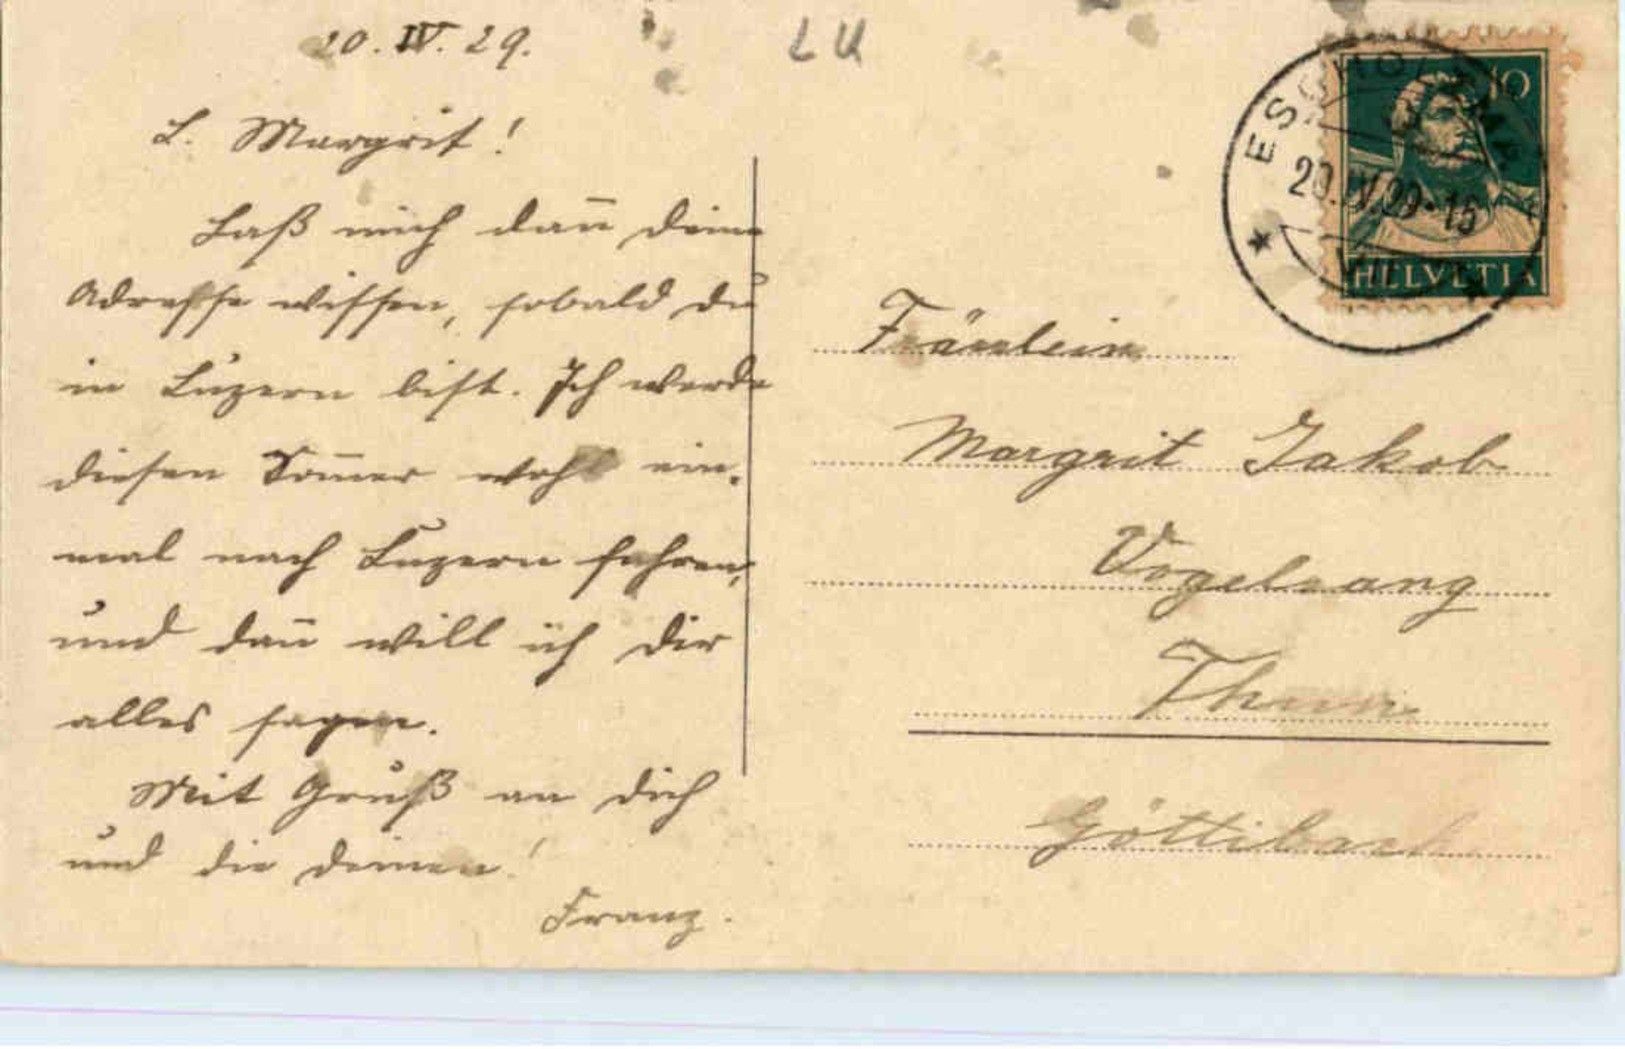 20. IV. 29.
LU
L. Margrit!
Laß mich dan̄ deine
Adresse wissen, sobald du
in Luzern bist. Ich werde
diesen Som̄er wohl ein-
mal nach Luzern fahren,
und dan̄ will ich dir
alles sagen.
Mit Gruß an dich
und die deinen!
Franz.
10
HELVETIA
ESCHOLZMATT
20.IV.29.15
Fräulein
Margrit Jakob
Vogelsang
Thun
Göttibach